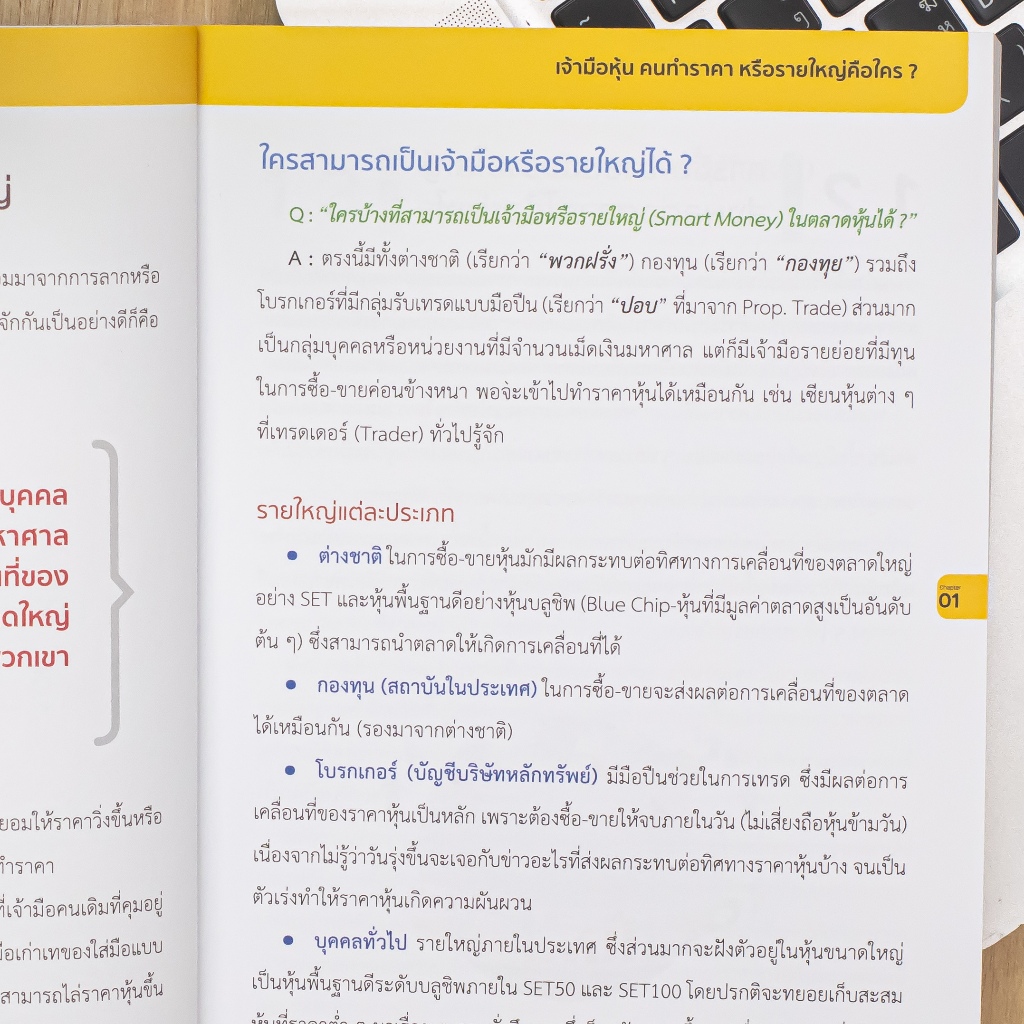 เจ้ามือหุ้น คนทำราคา หรือรายใหญ่คือใคร ?
ใครสามารถเป็นเจ้ามือหรือรายใหญ่ได้ ?
Q : “ใครบ้างที่สามารถเป็นเจ้ามือหรือรายใหญ่ (Smart Money) ในตลาดหุ้นได้ ?”
A : ตรงนี้มีทั้งต่างชาติ (เรียกว่า “พวกฝรั่ง”) กองทุน (เรียกว่า “กองทุย”) รวมถึง
โบรกเกอร์ที่มีกลุ่มรับเทรดแบบมือปืน (เรียกว่า “ปอบ” ที่มาจาก Prop. Trade) ส่วนมาก
เป็นกลุ่มบุคคลหรือหน่วยงานที่มีจำนวนเม็ดเงินมหาศาล แต่ก็มีเจ้ามือรายย่อยที่มีทุน
ในการซื้อ-ขายค่อนข้างหนา พอจะเข้าไปทำราคาหุ้นได้เหมือนกัน เช่น เซียนหุ้นต่าง ๆ
ที่เทรดเดอร์ (Trader) ทั่วไปรู้จัก
รายใหญ่แต่ละประเภท
• ต่างชาติ ในการซื้อ-ขายหุ้นมักมีผลกระทบต่อทิศทางการเคลื่อนที่ของตลาดใหญ่
อย่าง SET และหุ้นพื้นฐานดีอย่างหุ้นบลูชิพ (Blue Chip-หุ้นที่มีมูลค่าตลาดสูงเป็นอันดับ
ต้น ๆ) ซึ่งสามารถนำตลาดให้เกิดการเคลื่อนที่ได้
• กองทุน (สถาบันในประเทศ) ในการซื้อ-ขายจะส่งผลต่อการเคลื่อนที่ของตลาด
ได้เหมือนกัน (รองมาจากต่างชาติ)
• โบรกเกอร์ (บัญชีบริษัทหลักทรัพย์) มีมือปืนช่วยในการเทรด ซึ่งมีผลต่อการ
เคลื่อนที่ของราคาหุ้นเป็นหลัก เพราะต้องซื้อ-ขายให้จบภายในวัน (ไม่เสี่ยงถือหุ้นข้ามวัน)
เนื่องจากไม่รู้ว่าวันรุ่งขึ้นจะเจอกับข่าวอะไรที่ส่งผลกระทบต่อทิศทางราคาหุ้นบ้าง จนเป็น
ตัวเร่งทำให้ราคาหุ้นเกิดความผันผวน
• บุคคลทั่วไป รายใหญ่ภายในประเทศ ซึ่งส่วนมากจะฝังตัวอยู่ในหุ้นขนาดใหญ่
เป็นหุ้นพื้นฐานดีระดับบลูชิพภายใน SET50 และ SET100 โดยปรกติจะทยอยเก็บสะสม
Chapter
01
มมาจากการลากหรือ
จักกันเป็นอย่างดีก็คือ
บุคคล
หาศาล
ที่ของ
ดใหญ่
พวกเขา
ยอมให้ราคาวิ่งขึ้นหรือ
ทำราคา
ที่เจ้ามือคนเดิมที่คุมอยู่
มือเก่าเทของใส่มือแบบ
สามารถไล่ราคาหุ้นขึ้น